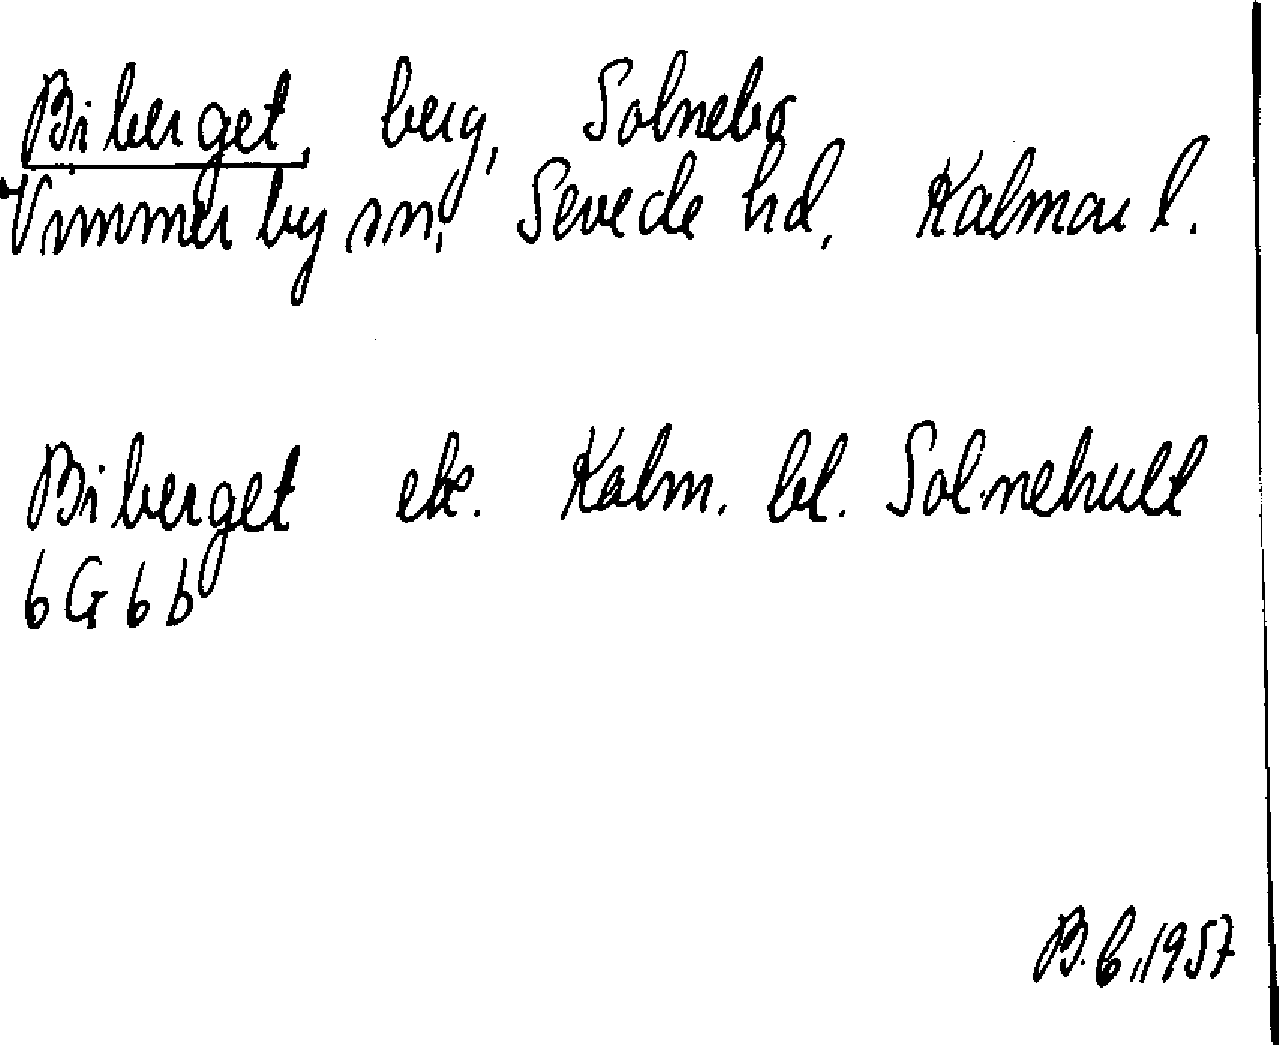 Biberget, berg, Solnebo
Vimmerby sn, Sevede hd, Kalmar l.
Biberget ek. Kalm. bl. Solnehult
6G6b
B.C. 1957